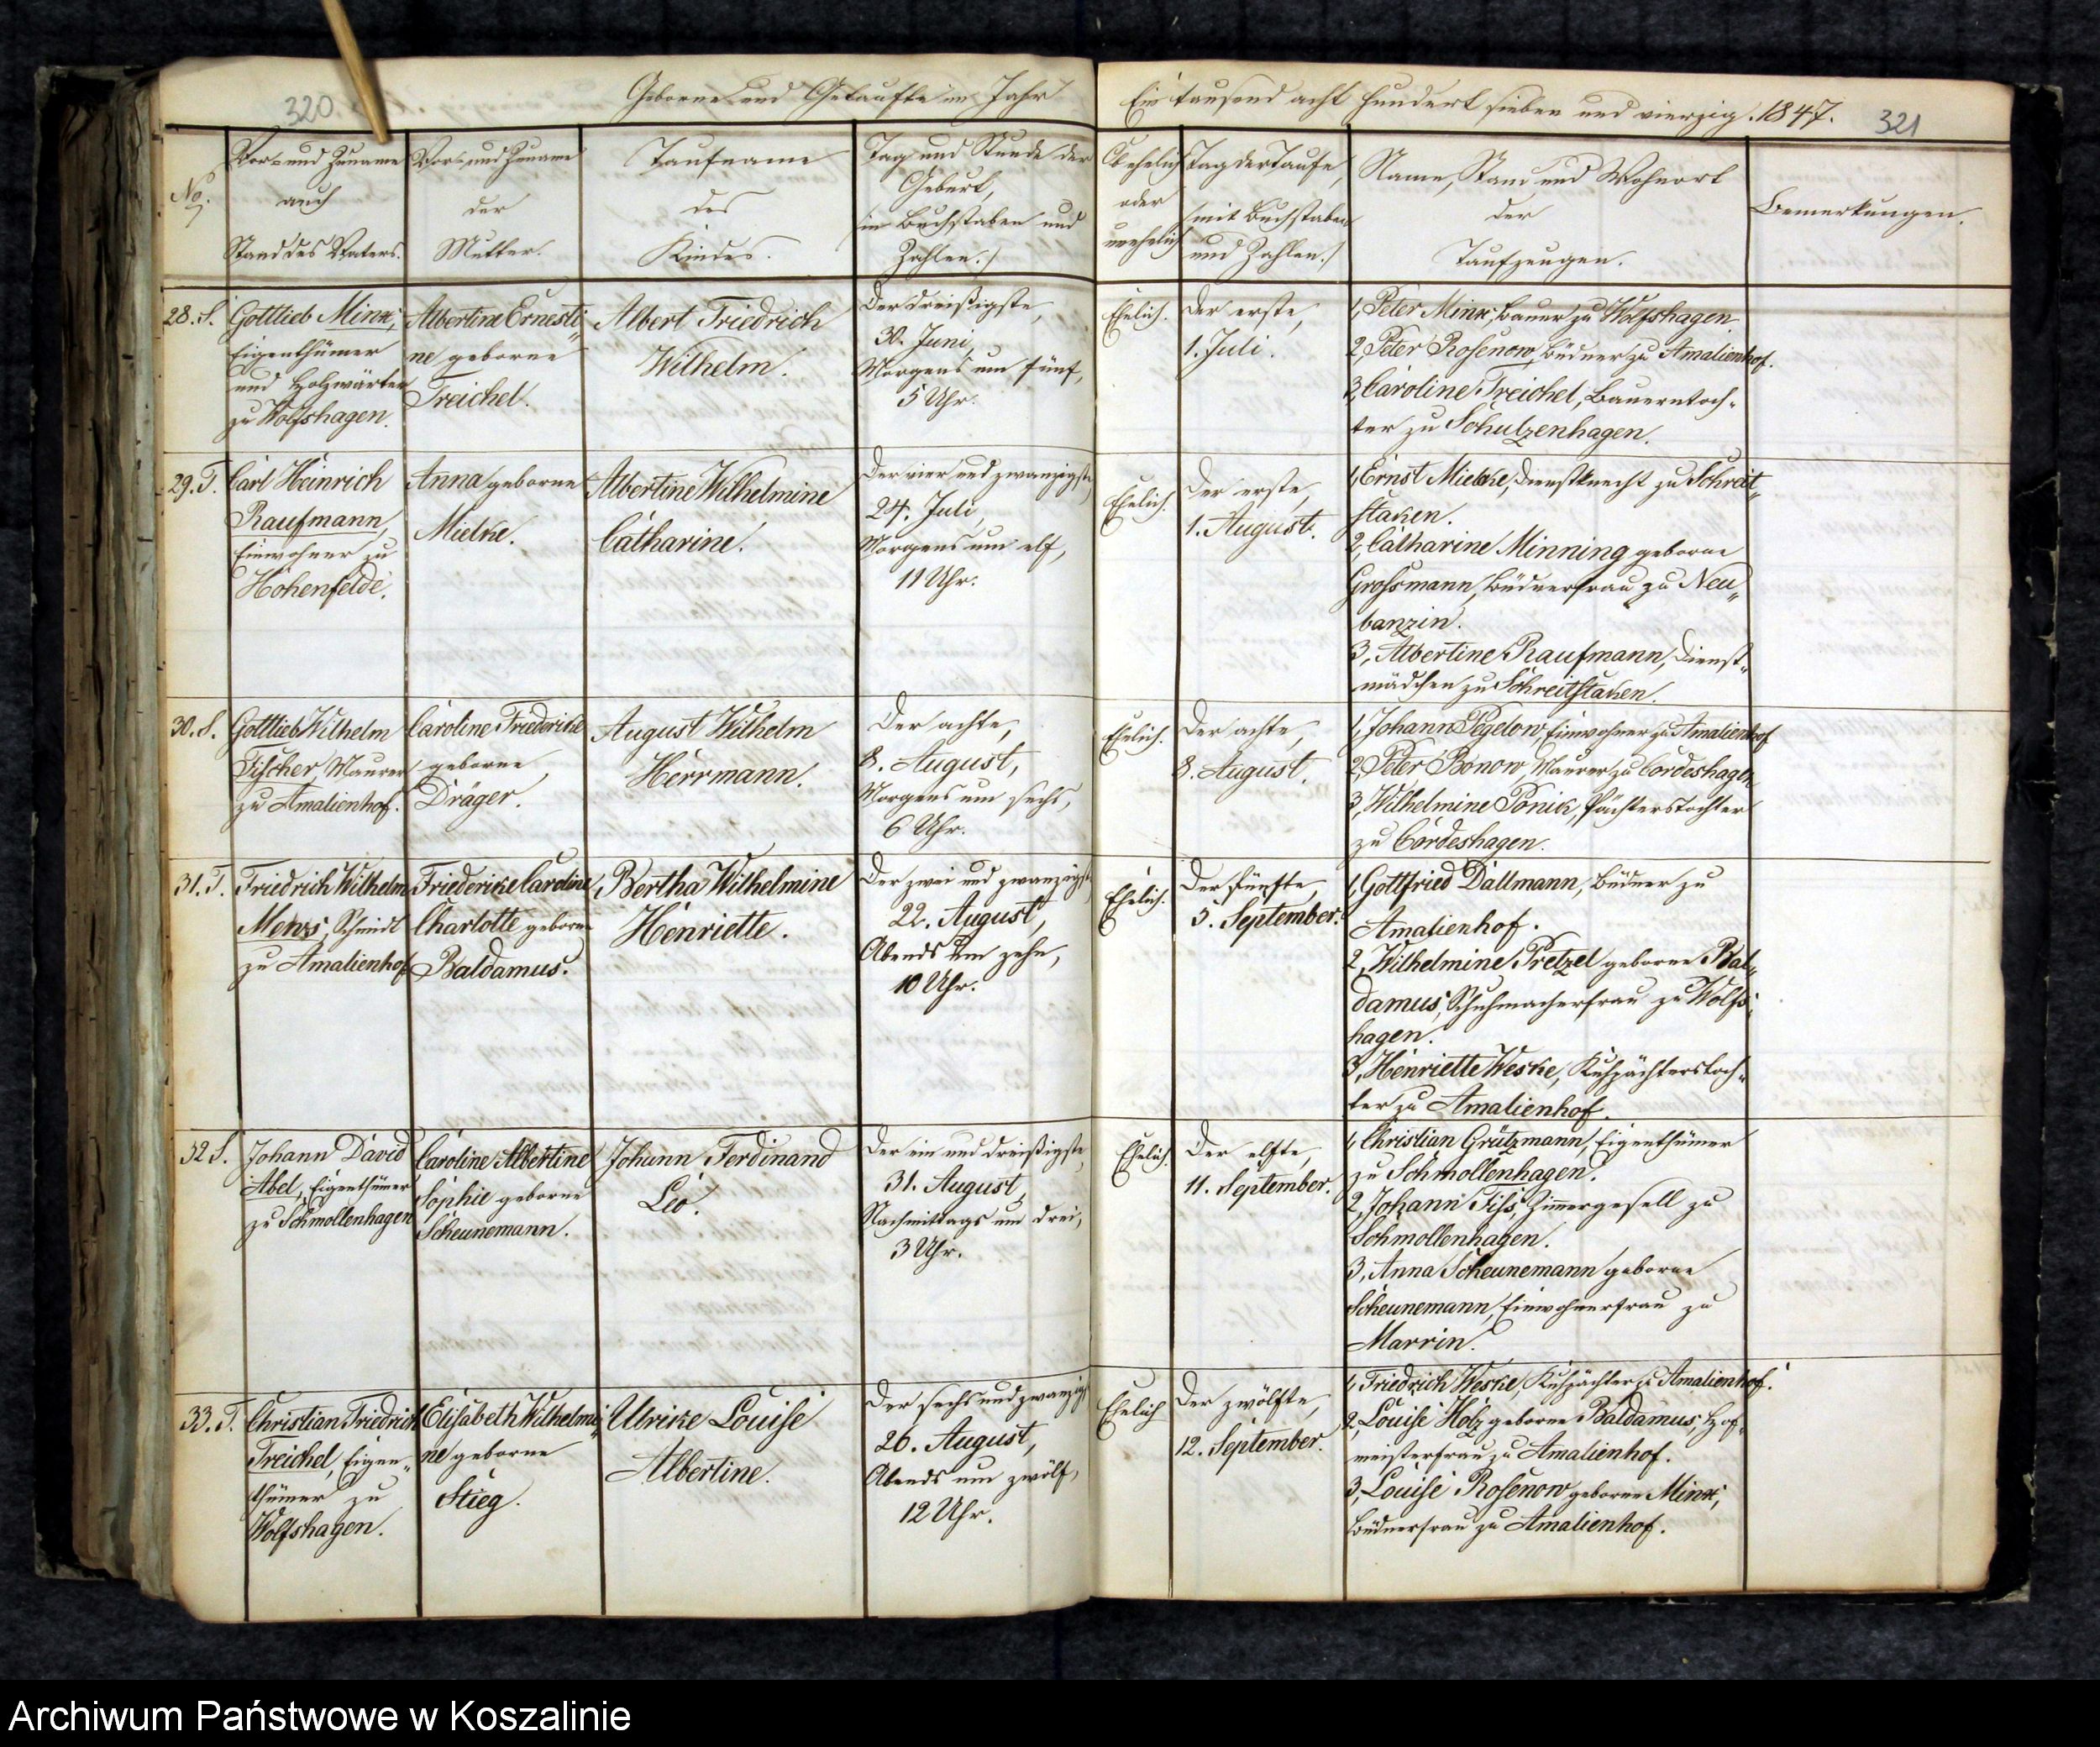 320.
Geborne und Getaufte im Jahr
Ein tausend acht hundert sieben und vierzig. 1847.
321
No.
Vor- und Zuname
auch
Stand des Vaters.
Vor- und Zuname
der
Mutter.
Taufname
des
Kindes.
Tag und Stunde der
Geburt,
(in Buchstaben und
Zahlen.)
Ob ehelich
oder
unehelich
Tag der Taufe,
(mit Buchstaben
und Zahlen.)
Name, Stand und Wohnort
der
Taufzeugen.
Bemerkungen.
28. S.
Gottlieb Minx,
Eigenthümer
und Holzwärter
zu Wolfshagen.
Albertine Ernesti„
ne geborne
Treichel.
Albert Friedrich
Wilhelm.
Der dreißigste,
30. Juni,
Morgens um fünf,
5 Uhr.
Ehelich.
Der erste,
1. Juli.
1, Peter Minx, Bauer zu Wolfshagen.
2, Peter Rosenow, Büdner zu Amalienhof.
3, Caroline Treichel, Bauerntoch-
ter zu Schulzenhagen.
29. T.
Carl Heinrich
Raufmann,
Einwohner zu
Hohenfelde.
Anna geborne
Mielke.
Albertine Wilhelmine
Catharine.
Der vier und zwanzigste,
24. Juli,
Morgens um elf,
11 Uhr.
Ehelich.
Der erste,
1. August.
1, Ernst Mielke, Dienstknecht zu Schreit„
staken.
2, Catharine Minning geborne
Grossmann, Büdnerfrau zu Neu„
banzin.
3, Albertine Raufmann, Dienst„
mädchen zu Schreitstaken.
30. S.
Gottlieb Wilhelm
Fischer, Maurer
zu Amalienhof.
Caroline Friederike
geborne
Dräger.
August Wilhelm
Herrmann.
Der achte,
8. August,
Morgens um sechs,
6 Uhr.
Ehelich.
Der achte,
8. August.
1, Johann Pegelow, Einwohner zu Amalienhof
2, Peter Bonow, Maurer zu Cordeshagen
3, Wilhelmine Ponik, Pächterstochter
zu Cordeshagen.
31. T.
Friedrich Wilhelm
Menz, Schmidt
zu Amalienhof
Friederike Caroline
Charlotte geborne
Baldamus.
Bertha Wilhelmine
Henriette.
Der zwei und zwanzigste,
22. August,
Abends um zehn,
10 Uhr.
Ehelich.
Der fünfte,
5. September.
1, Gottfried Dallmann, Büdner zu
Amalienhof.
2, Wilhelmine Pretzel geborne Bal„
damus, Schuhmacherfrau zu Wolfs„
hagen.
3, Henriette Weske, Kuhpächterstoch„
ter zu Amalienhof.
32 S.
Johann David
Abel, Eigenthümer
zu Schmollenhagen
Caroline Albertine
Sophie geborne
Scheunemann.
Johann Ferdinand
Leo.
Der ein und dreißigste,
31. August,
Nachmittags um drei,
3 Uhr.
Ehelich.
Der elfte,
11. September.
1, Christian Grützmann, Eigenthümer
zu Schmollenhagen.
2, Johann Fiss, Zimmergesell zu
Schmollenhagen.
3, Anna Scheunemann geborne
Scheunemann, Einwohnerfrau zu
Marrin.
33. T.
Christian Friedrich
Treichel, Eigen„
thümer zu
Wolfshagen.
Elisabeth Wilhelmi„
ne geborne
Stieg.
Ulrike Louise
Albertine.
Der sechs und zwanzigste
26. August,
Abends um zwölf,
12 Uhr.
Ehelich
Der zwölfte,
12. September.
1, Friedrich Weske, Kuhpächter zu Amalienhof.
2, Louise Holz geborne Baldamus, Hof„
meisterfrau zu Amalienhof.
3, Louise Rosenow geborne Minx,
Büdnerfrau zu Amalienhof.
Archiwum Państwowe w Koszalinie